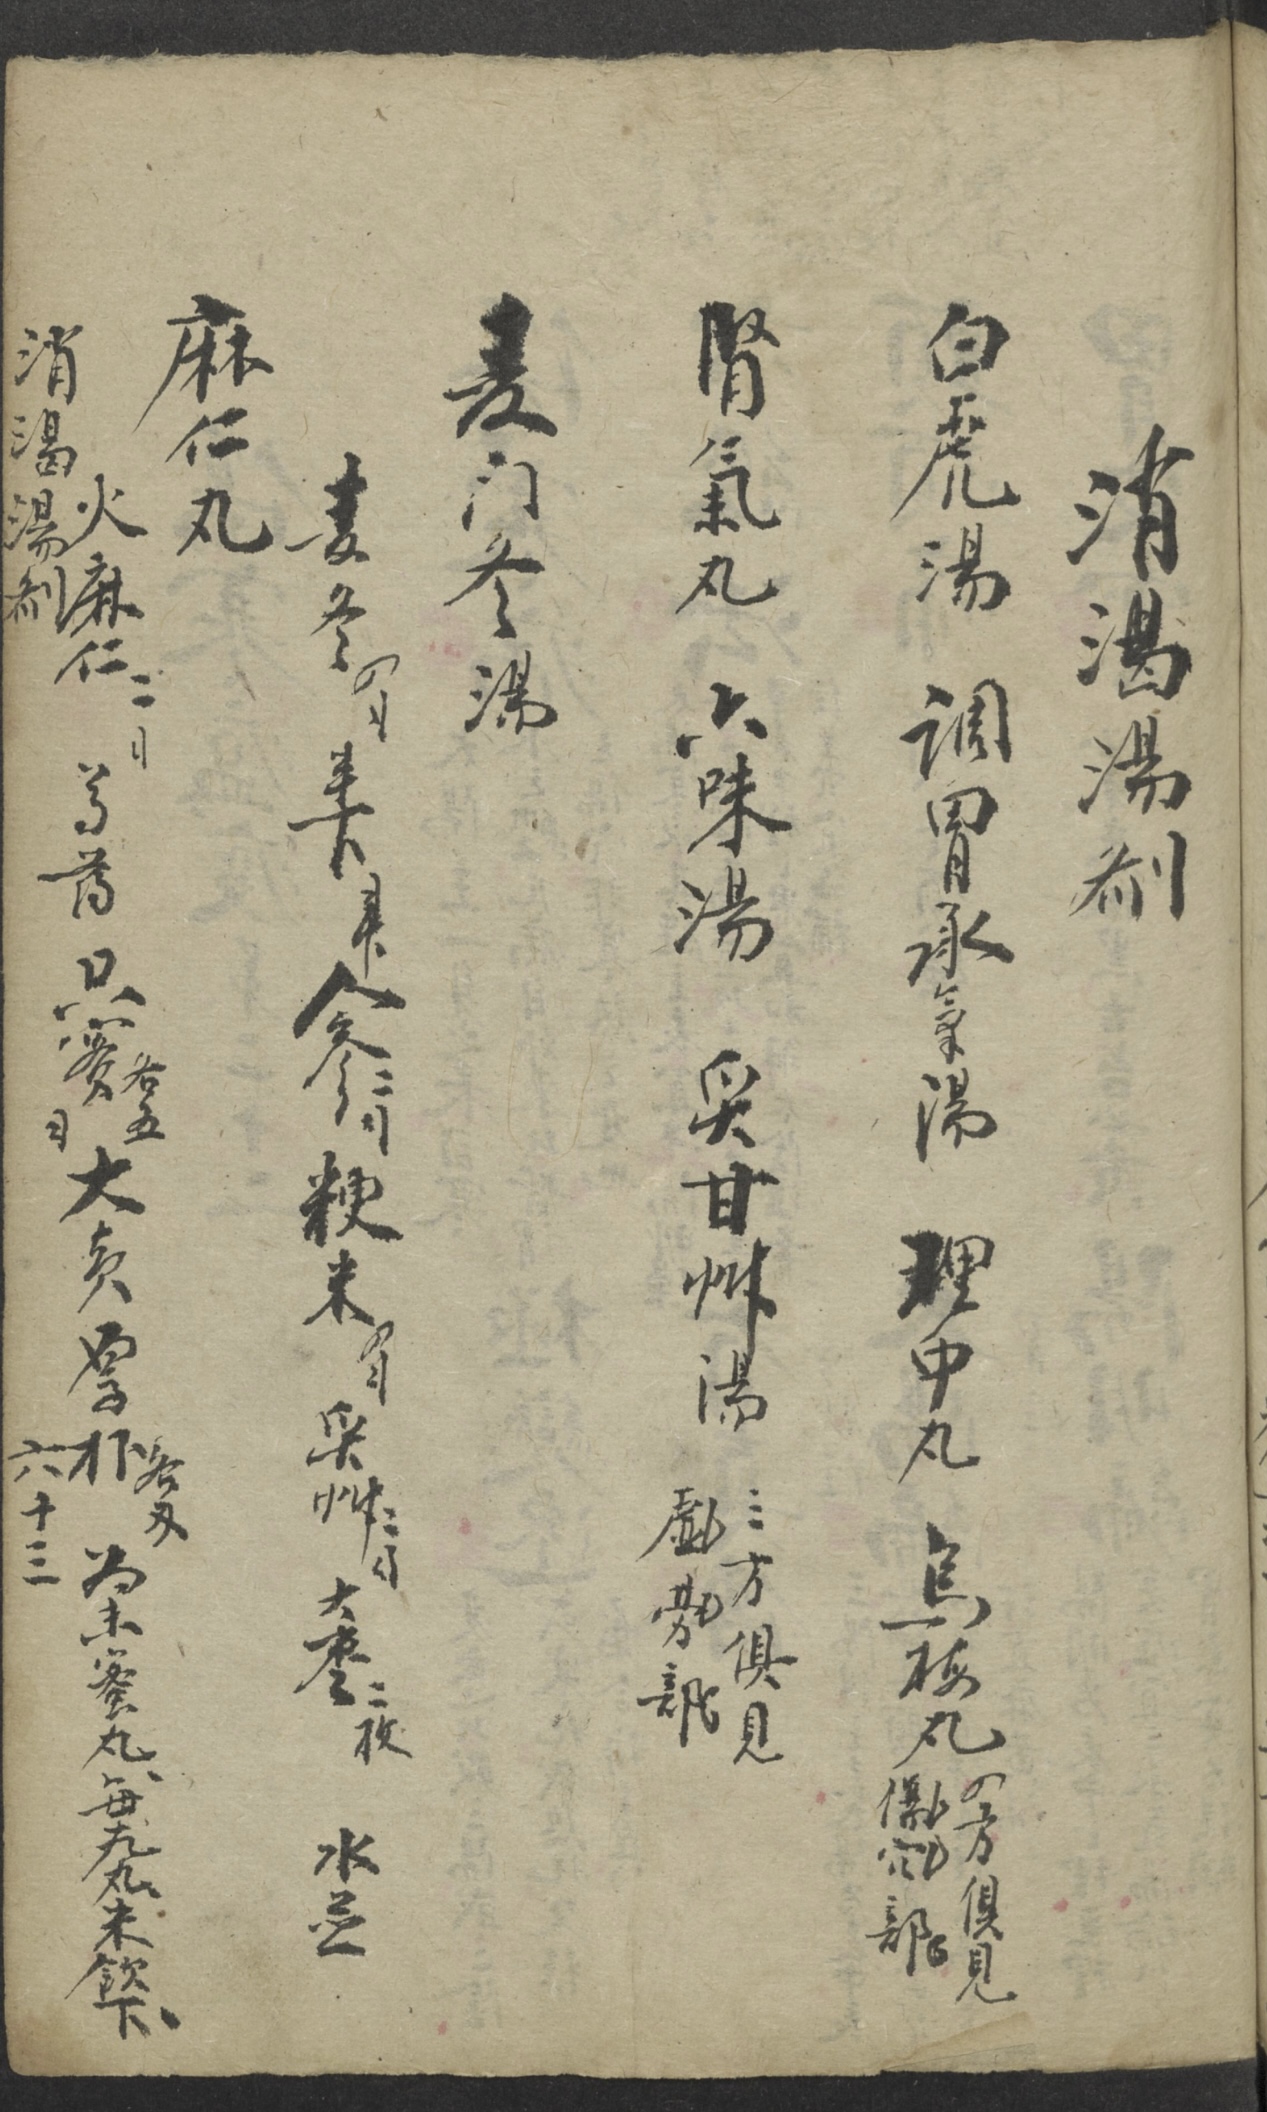 消渴湯劑
白虎湯 調胃承氣湯 理中丸 烏梅丸 四方俱見
傷寒部
腎氣丸 六味湯 炙甘艸湯 三方俱見
虛勞部
麦门冬湯
麦冬 四刄 半夏 人參 二刄 粳米 四刄 炙艸 二刄 大棗 二枚 水煎
麻仁丸
火麻仁 二刄 芍药 只實 各五刄 大黄 厚朴 各 為末蜜丸、每九丸、米飲下、
消渴湯劑 六十三